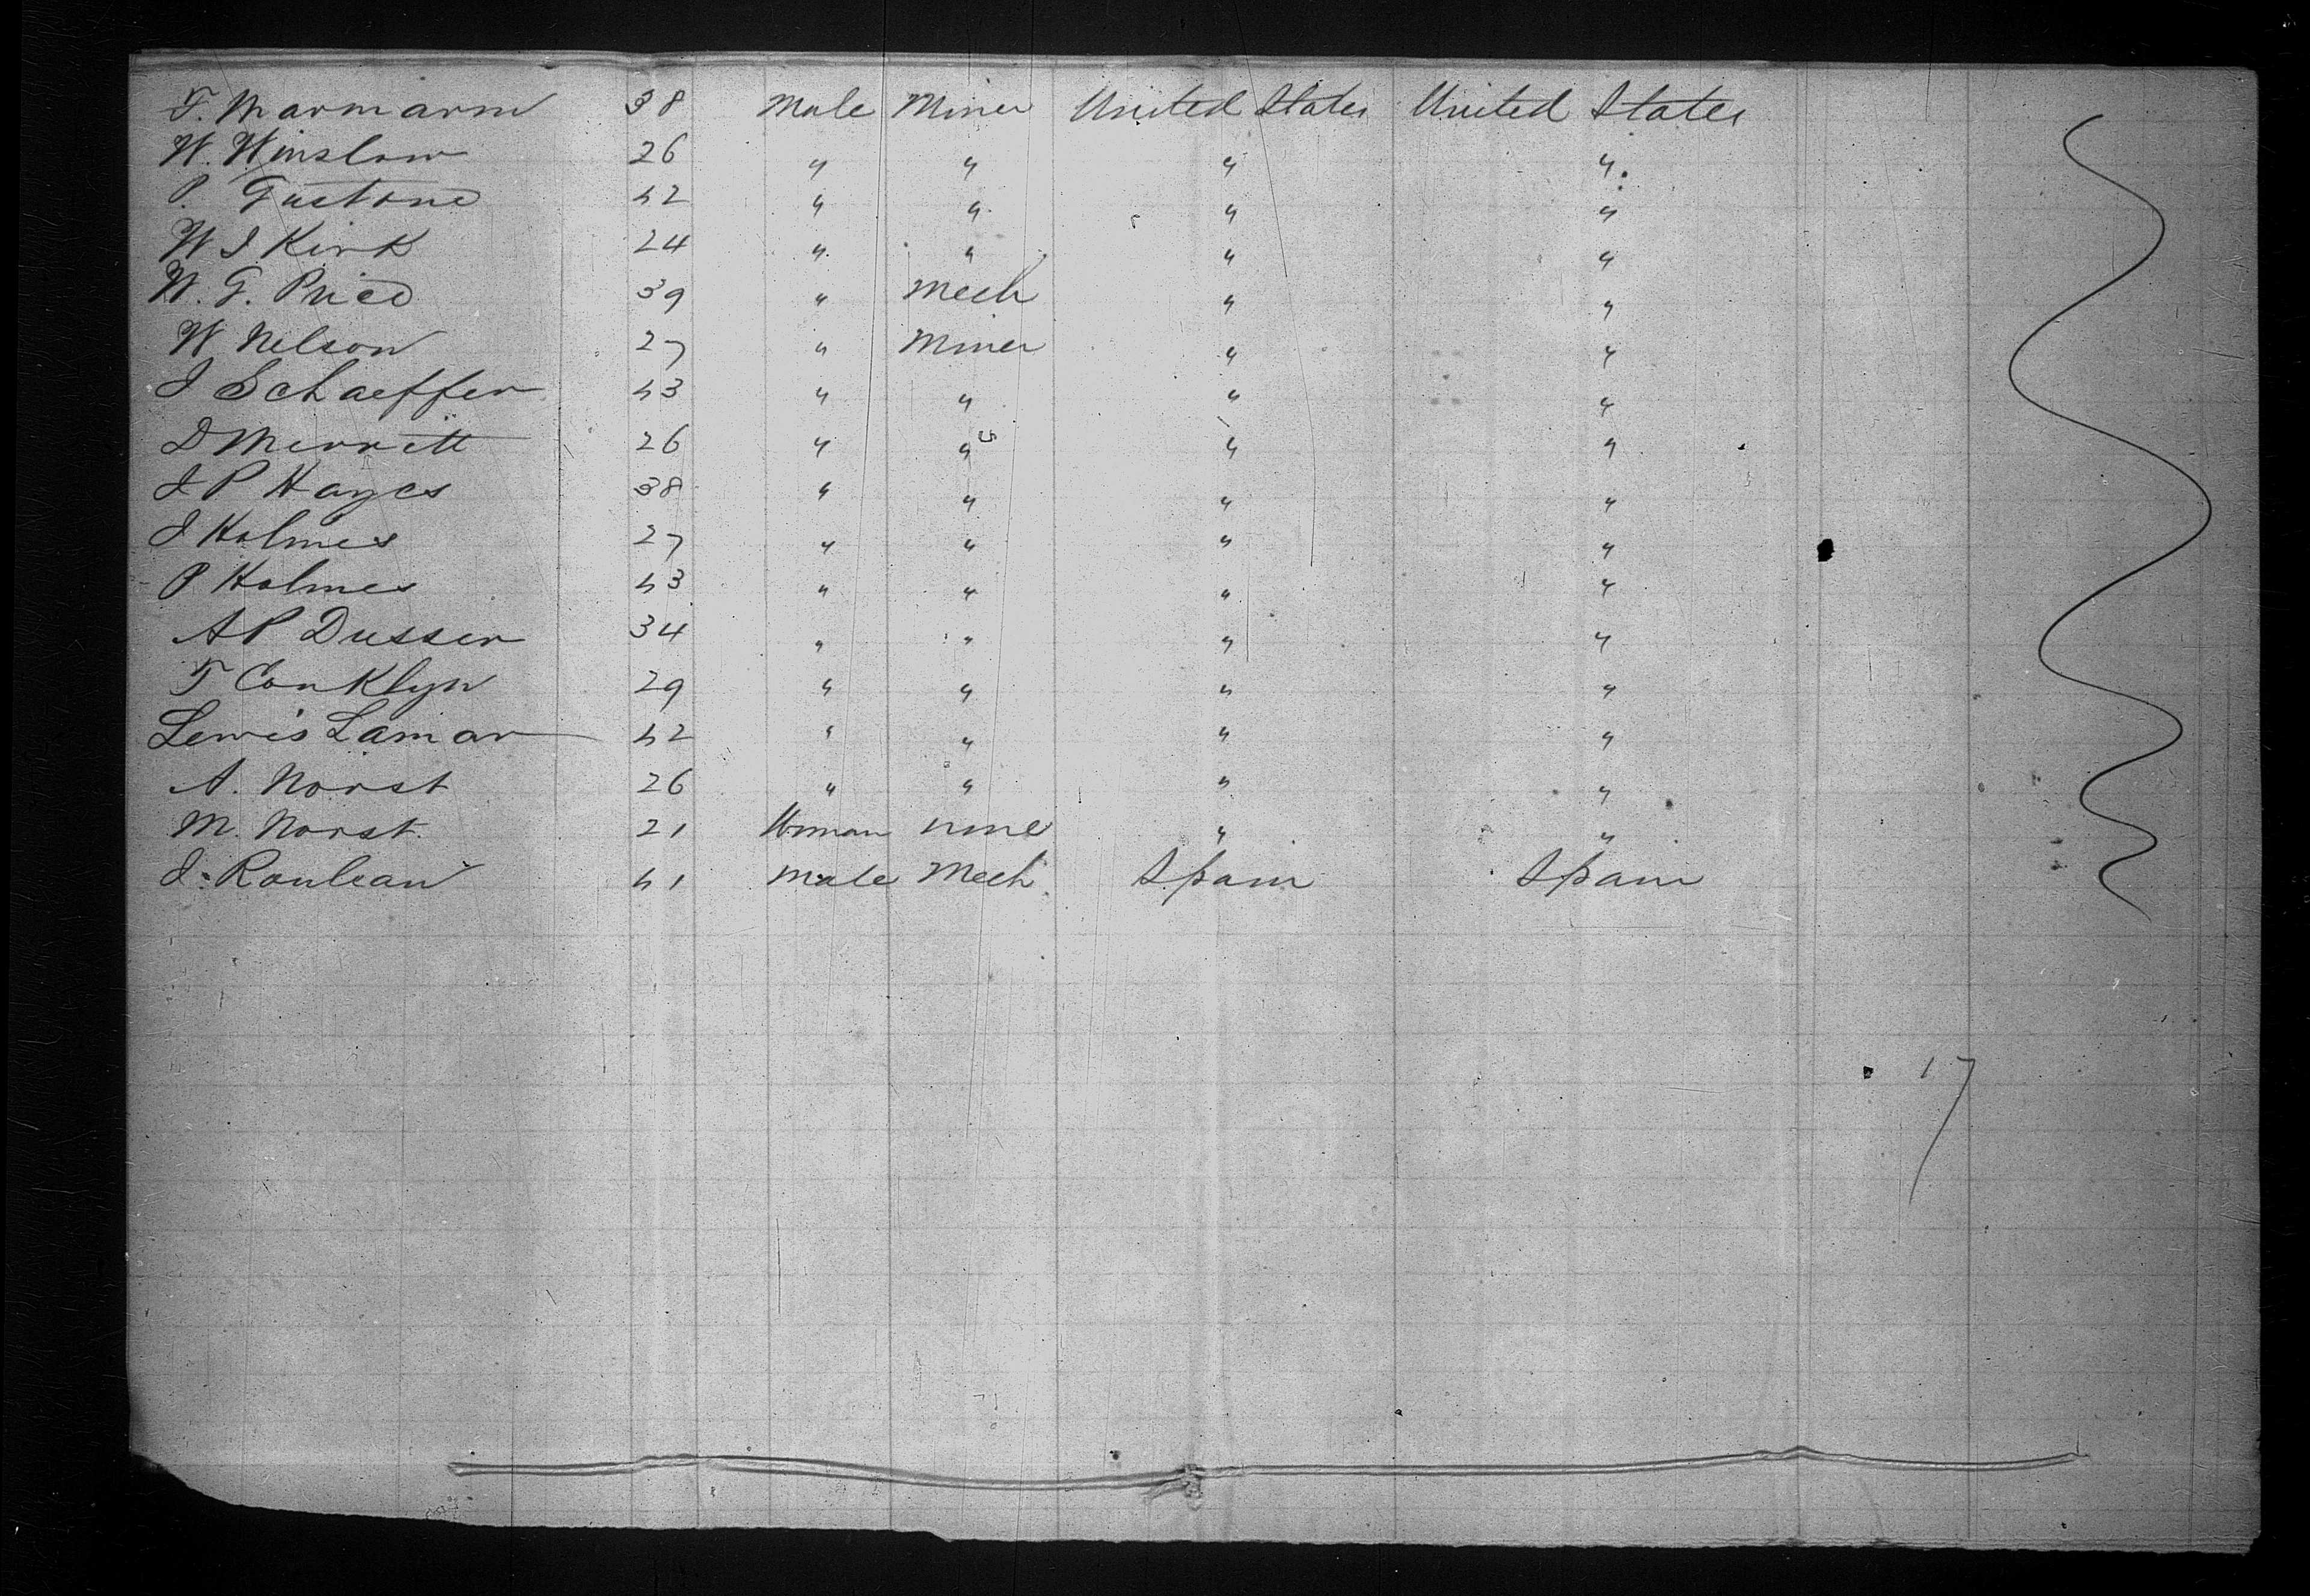 T. Marmarm 38 Male Miner United States United States
W. Winslow 26 " " " "
P. Gustone 42 " " " "
W J Kirk 24 " " " "
W. G. Price 39 " Mech " "
W Nelson 27 " Miner " "
J Schaeffer 43 " " " "
D Merritt 26 " " " "
J P Hayes 38 " " " "
J Holmes 27 " " " "
P Holmes 43 " " " "
A P Dusser 34 " " " "
T Conklyn 29 " " " "
Lewis Lamar 42 " " " "
A. Norst 26 " " " "
M. Norst. 21 Woman none " "
J. Rouleau 41 Male Mech Spain Spain
17